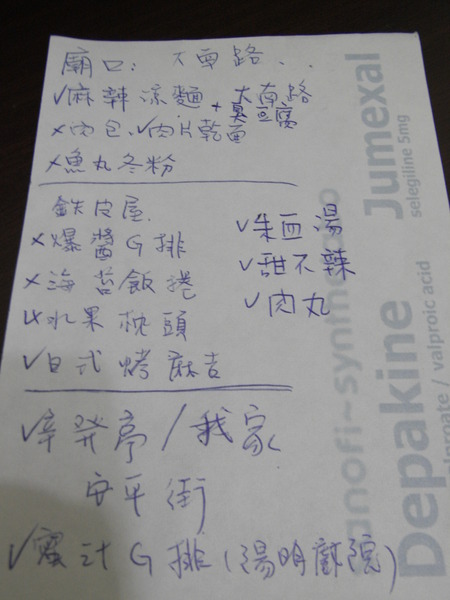 廟口: 大南路..
✓麻辣涼麵+臭豆腐 大南路
×肉包.✓肉片乾面
×魚丸冬粉
鉄皮屋.
×爆醬G排
×海苔飯捲
×水果枕頭
✓日式烤麻吉
✓朱血湯
✓甜不辣
✓肉丸
✓辛發亭/我家
安平街
✓蜜汁G排(陽明戲院)
Jumexal
selegiline 5mg
sanofi~synthelabo
Depakine
valproate / valproic acid